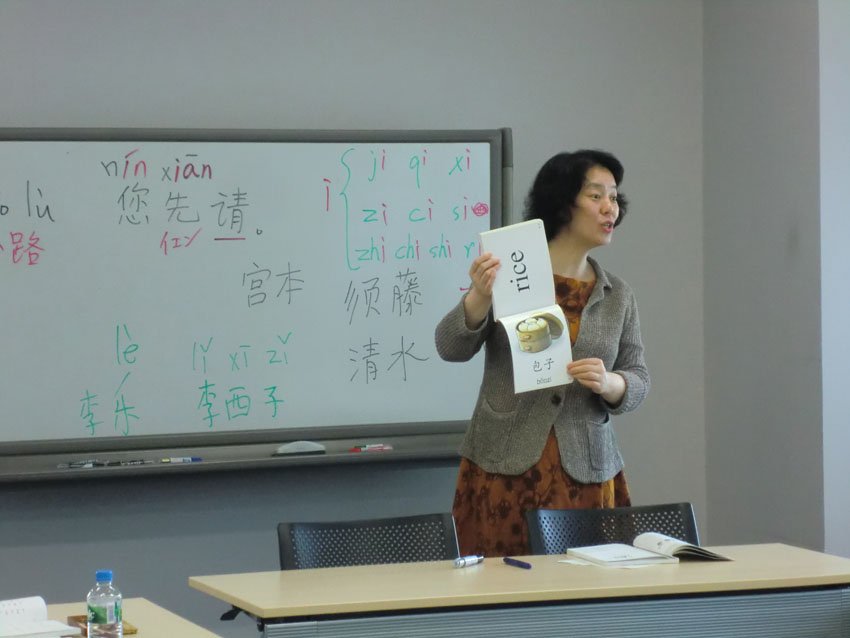 nín xiān
您先请。
イエン
lù
路
i
ji qi xi
zi ci si
zhi chi shi r
宫本
须藤
清水
lè
李乐
lǐ xī zǐ
李西子
rice
包子
bāozi